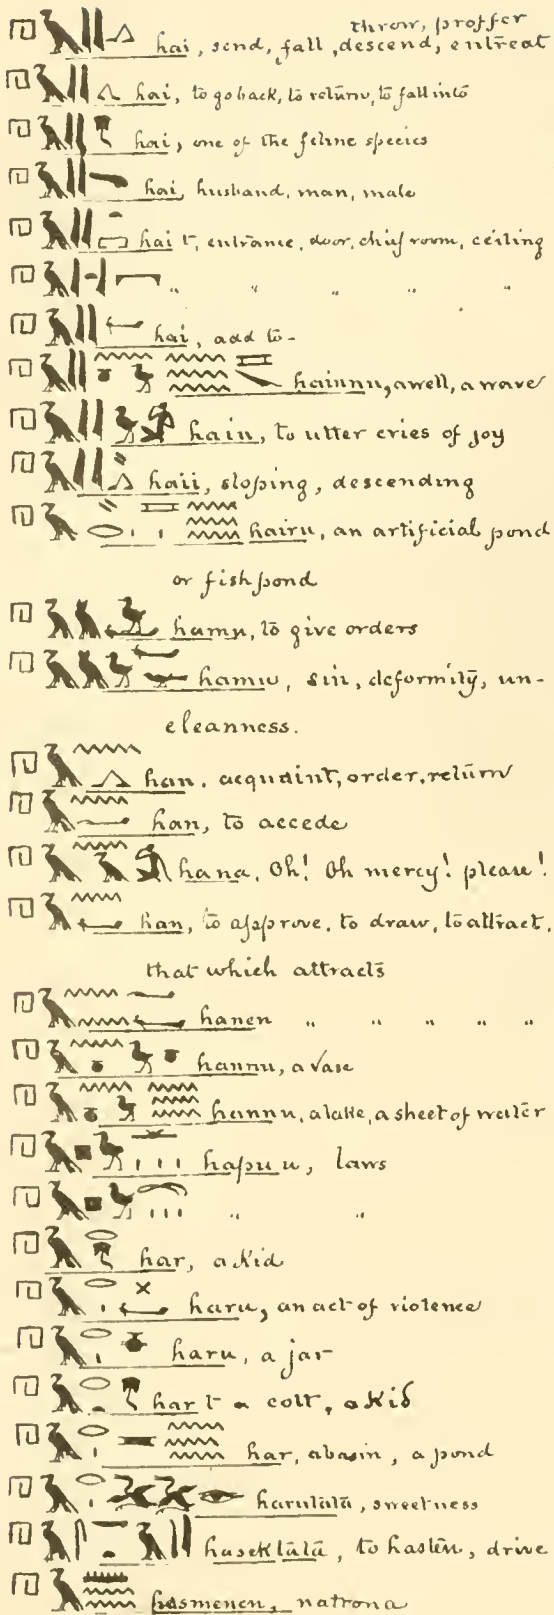 throw, proffer
hai, send, fall, descend, entreat
hai, to go back, to return, to fall into
hai, one of the feline species
hai, husband, man, male
hai t, entrance, door, chief room, ceiling
" " " " "
hai, add to-
hainnu, a well, a wave
haiu, to utter cries of joy
haii, sloping, descending
hairu, an artificial pond
or fishpond
hamu, to give orders
hamu, sin, deformity, un-
cleanness.
han, acquaint, order, return
han, to accede
hana, Oh! Oh mercy! please!
han, to approve, to draw, to attract,
that which attracts
hanen " " " " "
hannu, a vase
hannu, a lake, a sheet of water
hapu u, laws
" "
har, a kid
haru, an act of violence
haru, a jar
har t a colt, a kid
har, a basin, a pond
harutata, sweetness
hasektata, to hasten, drive
hasmenen, natrona